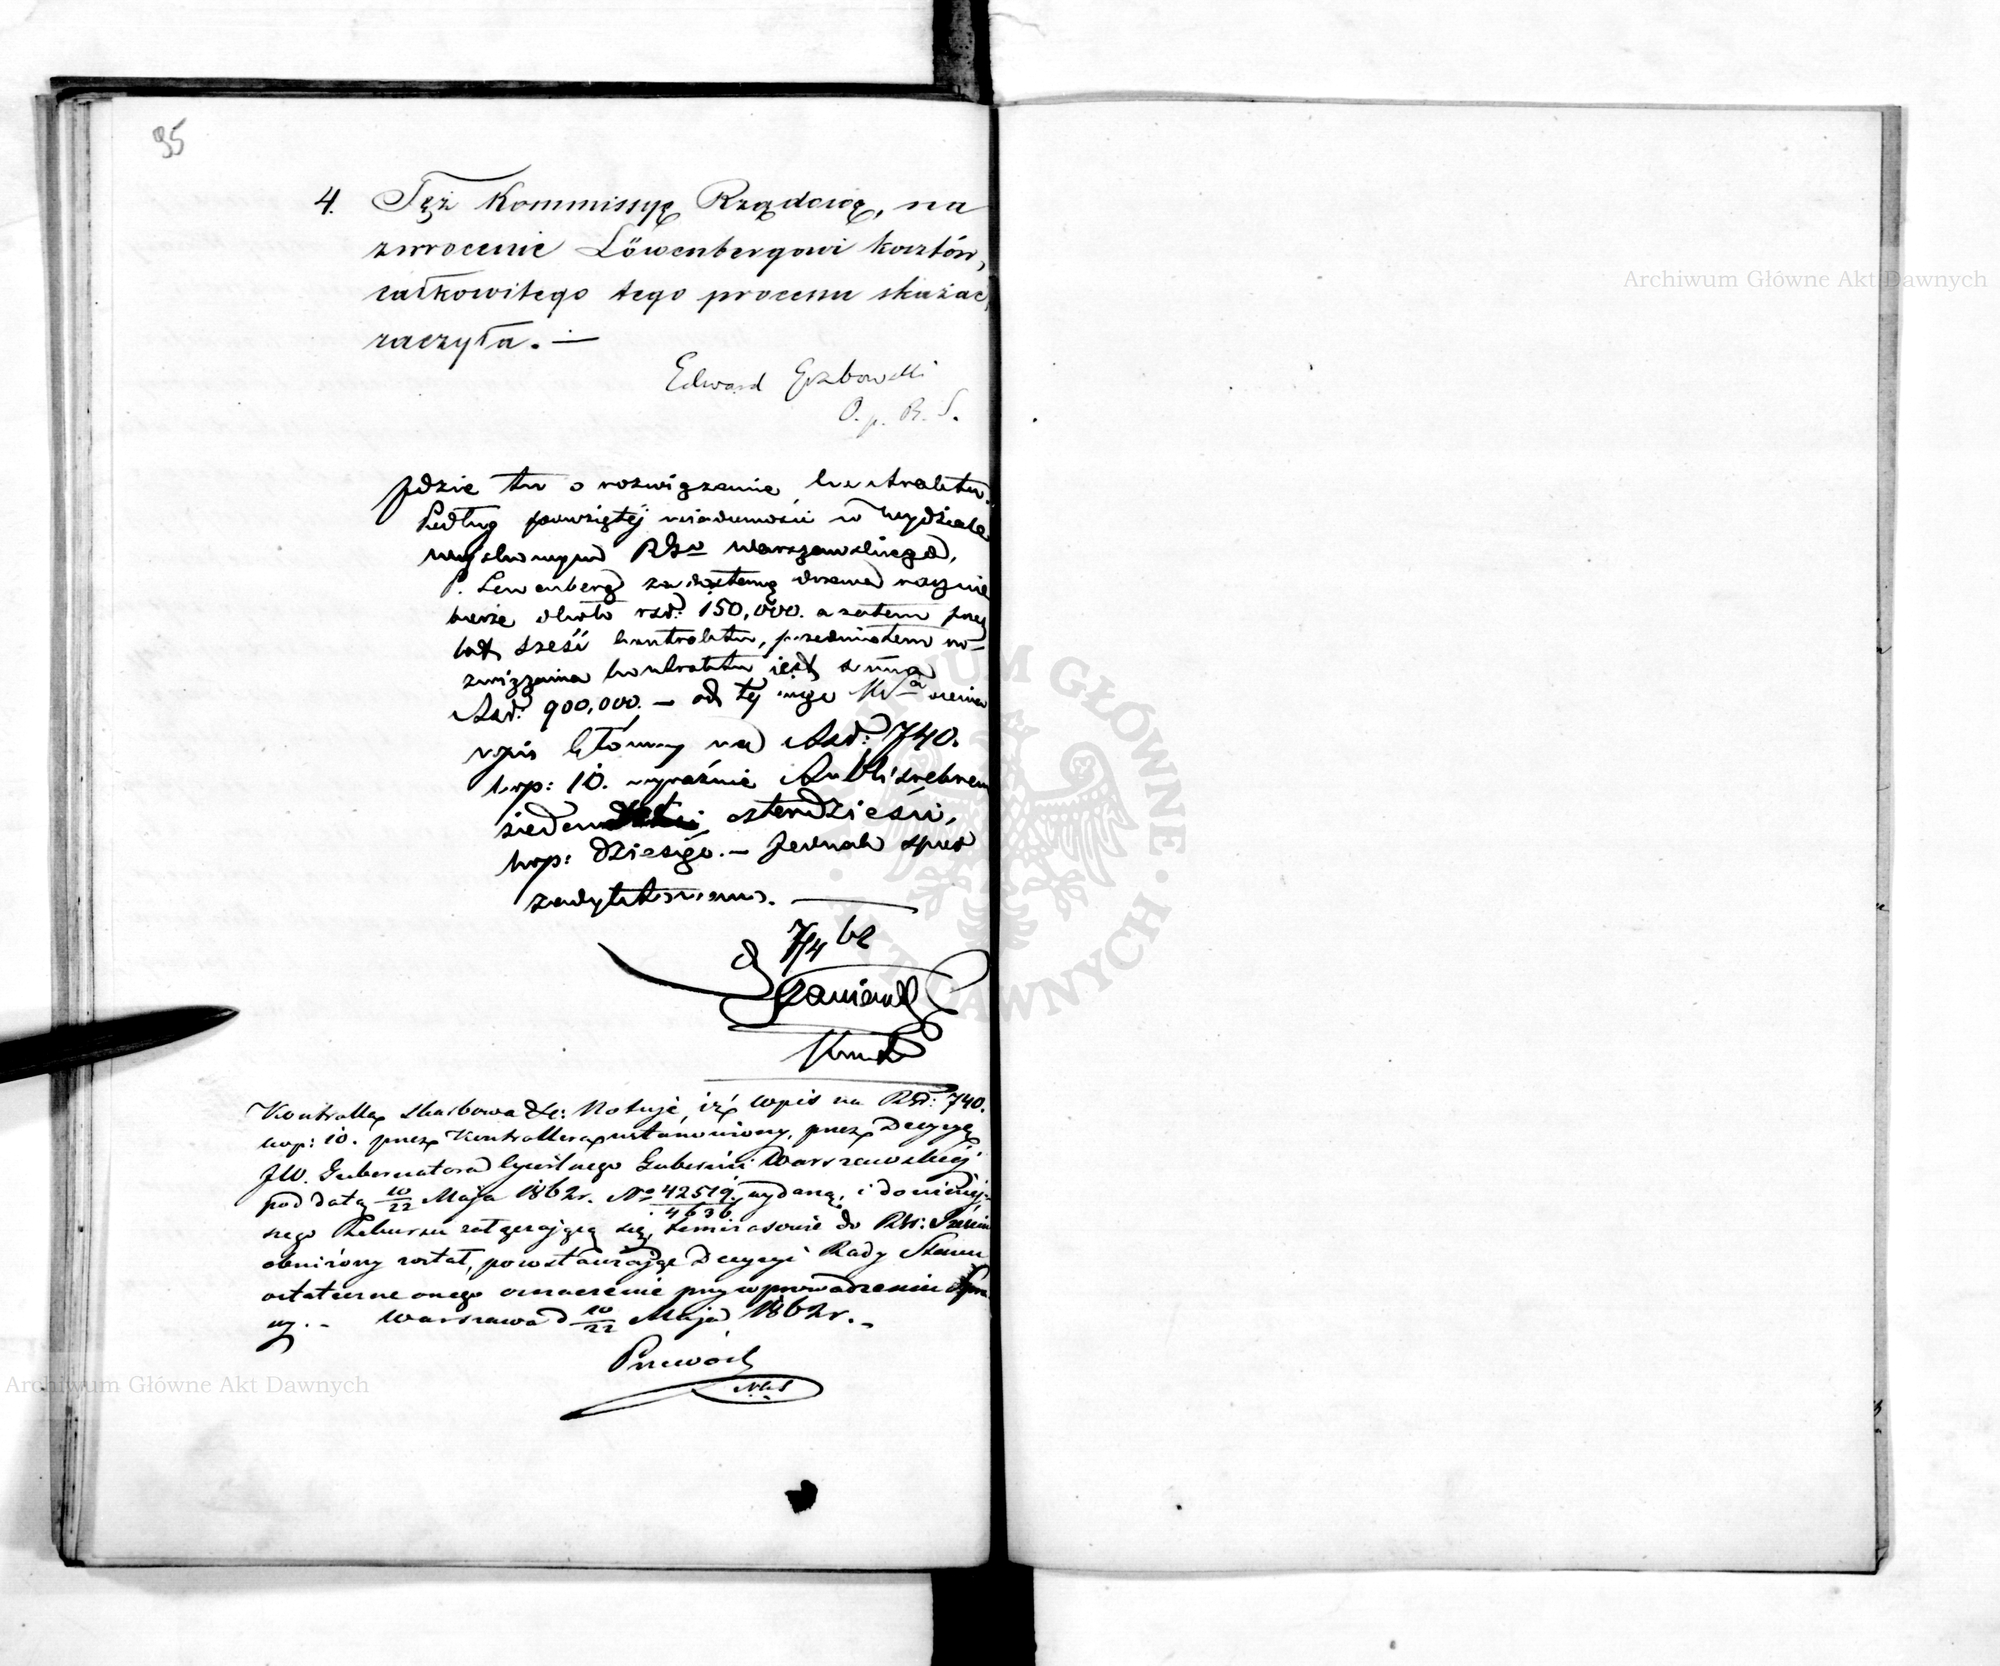 95
4. Tęż Kommissyę Rządową, na
zwrocenie Löwenbergowi kosztów,
całkowitego tego processu skazać
raczyła. —
Edward Grabowski
O. p. R. S.
Jdzie tu o rozwiązanie kontraktu.
Podług powziętej wiadomości w Wydziale
Warszawskiego,
P. Lewenberg za drzewo rocznie
bierze około rsr: 150,000. a zatem przez
lat sześć kontraktu, przedmiotem ro-
związania kontraktu jest summa
Rsr: 900,000. — od tej więc
wpis główny na Rsr: 740.
kop: 10. wyraźnie Rubli srebrem
siedemset czterdzieści,
kop: dziesięć. — Jednak spór
7/4 62
Kontrolla Skarbowa Notuje, iż wpis na Rsr: 740.
kop: 10. przez Kontrollera ustanowiony, przez Decyzyę
JW. Gubernatora Cywilnego Gubernii Warszawskiej
pod datą 10/22 Maja 1862 r. No 42519/4636 wydaną, i do niniej-
szego Rekursu załączającą się, do Rsr:
obniżony został, pozostawiając Decyzyi Rady Stanu
ostateczne onego oznaczenie przy wprowadzeniu Spra
wy. — Warszawa d 10/22 Maja 1862 r. —
Archiwum Główne Akt Dawnych
Archiwum Główne Akt Dawnych
ARCHIWUM GŁÓWNE · AKT DAWNYCH ·